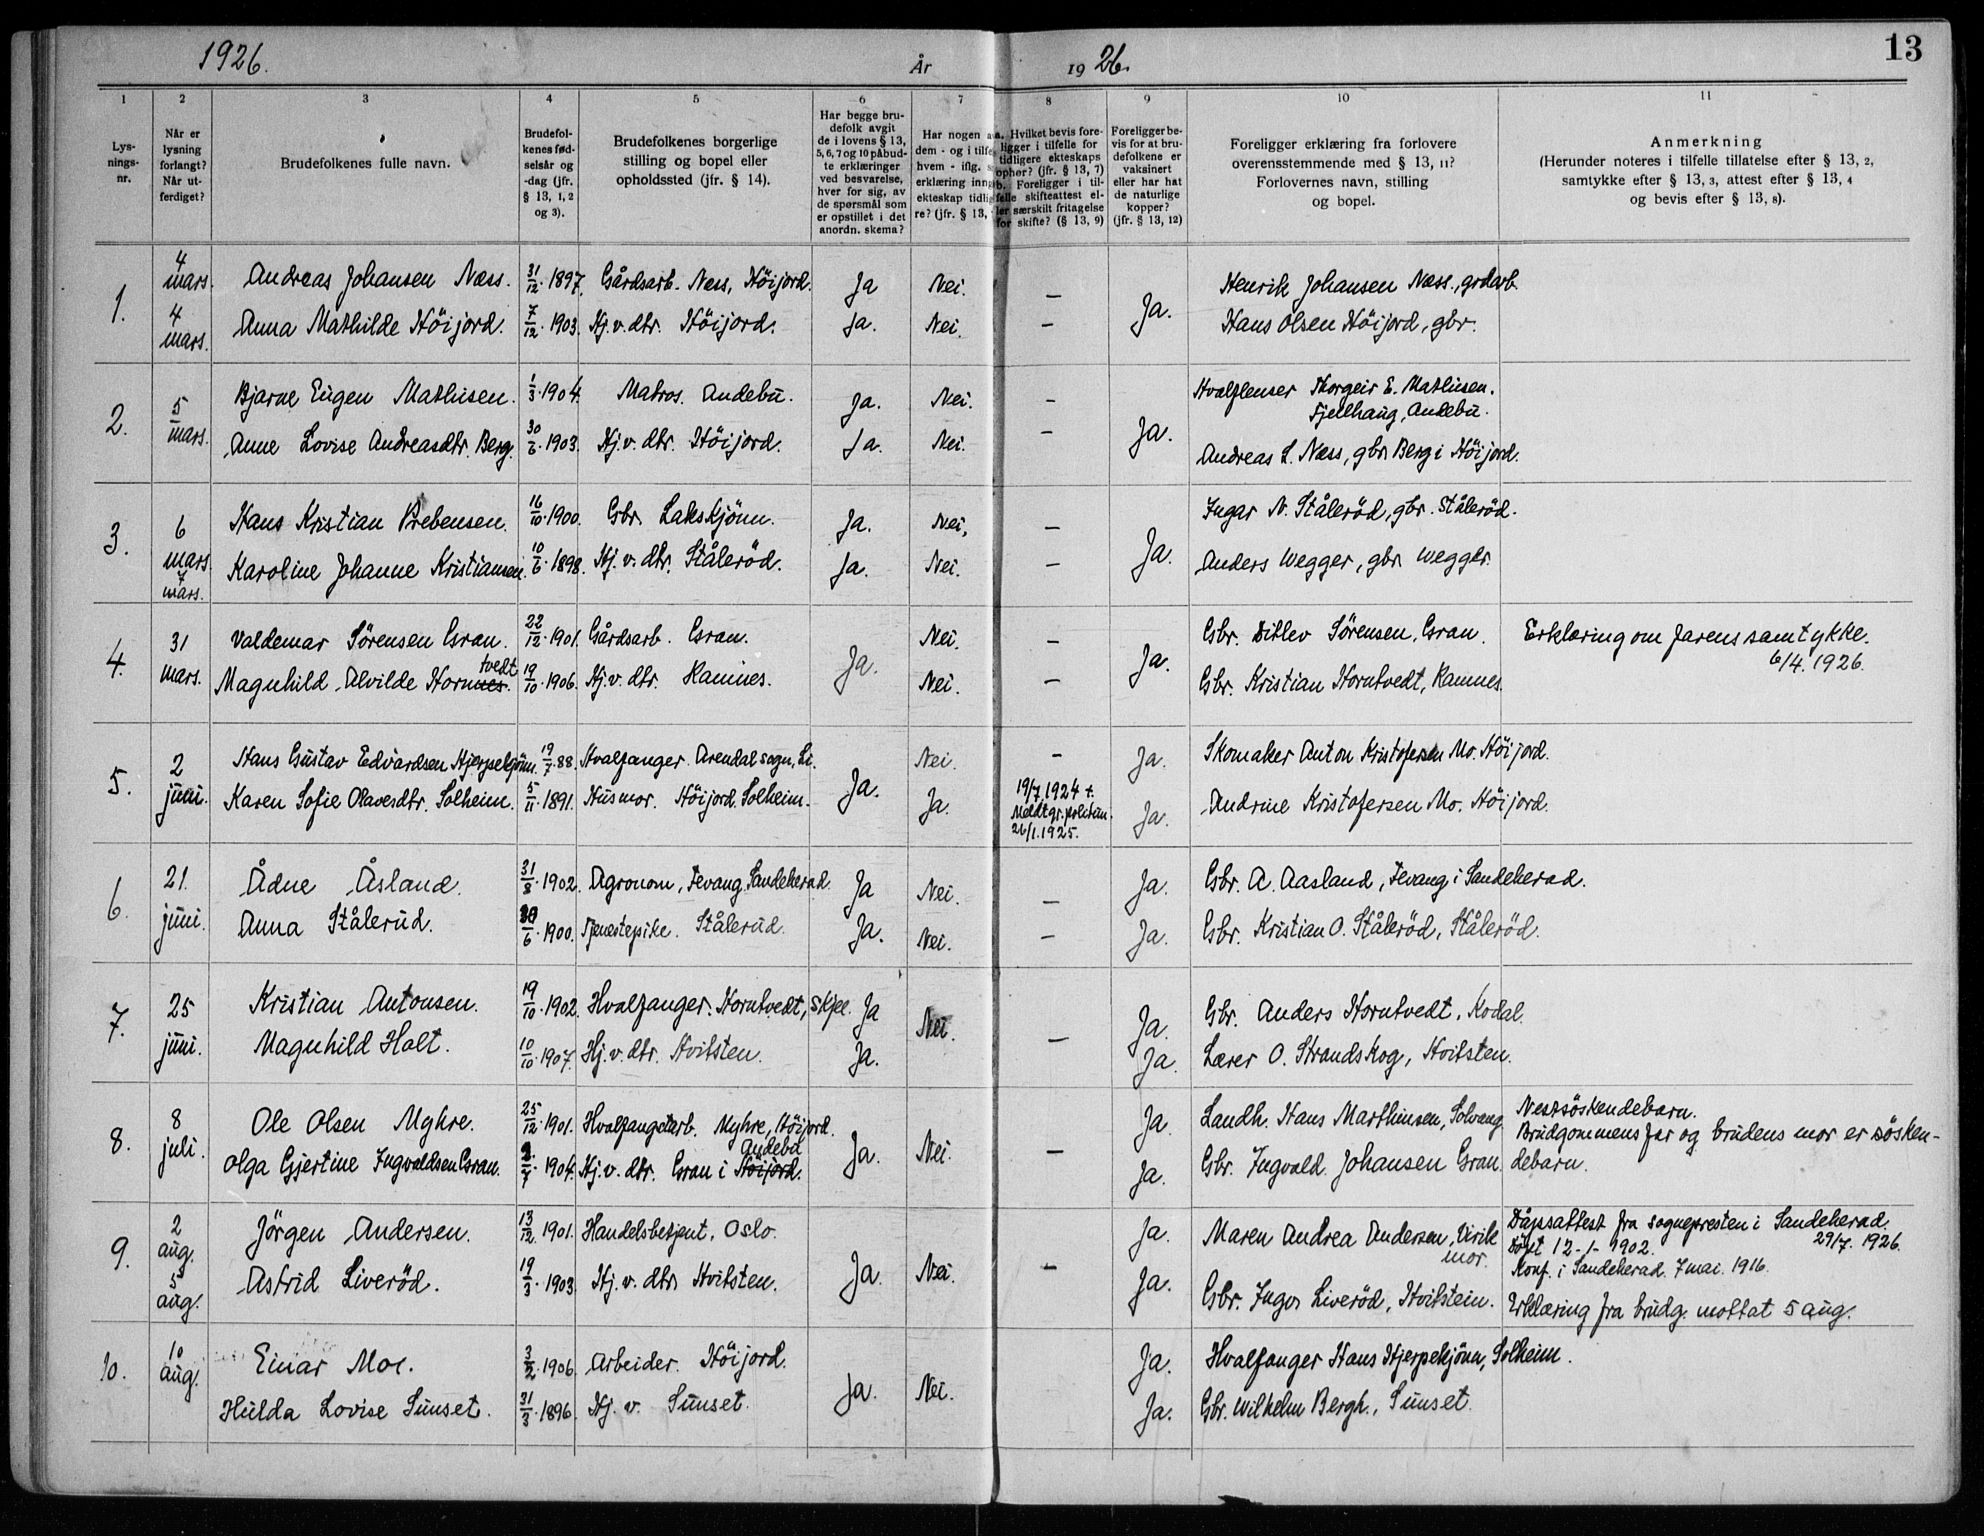 1926.
År
19 26.
13
1
2
3
4
5
6
7
8
9
10
11
Lys-
nings-
nr.
Når er
lysning
forlangt?
Når ut-
ferdiget?
Brudefolkenes fulle navn.
Brudefol-
kenes fød-
selsår og
-dag (jfr.
§ 13, 1, 2
og 3).
Brudefolkenes borgerlige
stilling og bopel eller
opholdssted (jfr. § 14).
Har begge bru-
defolk avgit
de i lovens § 13,
5, 6, 7 og 10 påbud-
te erklæringer
ved besvarelse,
hver for sig, av
de spørsmål som
er opstillet i det
anordn. skema?
Har nogen a
dem - og i tilfe
hvem - iflg. s
erklæring inng
ekteskap tidlig
re? (jfr. § 13,
a. Hvilket bevis fore-
ligger i tilfelle for
tidligere ekteskaps
ophør? (jfr. § 13, 7)
b. Foreligger i til-
felle skifteattest el-
ler særskilt fritagelse
for skifte? (§ 13, 9)
Foreligger be-
vis for at bru-
defolkene er
vaksinert
eller har hat
de naturlige
kopper?
(jfr. § 13, 12)
Foreligger erklæring fra forlovere
overensstemmende med § 13, 11?
Forlovernes navn, stilling
og bopel.
Anmerkning
(Herunder noteres i tilfelle tillatelse efter § 13, 2,
samtykke efter § 13, 3, attest efter § 13, 4
og bevis efter § 13, 8).
1. 4 mars. Andreas Johansen Næss. 31/12. 1897. Gårdsarb. Næss, Höijord. Ja Nei. — Ja. Henrik Johansen Næss., grdarb.
4 mars. Anna Mathilde Höijord. 7/12. 1903. Hj. v. dtr. Höijord. Ja. Nei. — Hans Olsen Höijord, gbr.
2. 5 mars. Bjarne Eugen Mathisen. 1/3. 1904. Matros. Andebu. Ja. Nei. — Ja. Hvalflenser Thorgeir E. Mathisen.
Fjellhaug, Andebu.
Anne Lovise Andreasdtr. Berg. 30/6. 1903. Hj. v. dtr. Höijord. Ja. Nei. — Andreas L. Næss, gbr. Berg i Höijord.
3. 6 mars. Hans Kristian Prebensen. 16/10. 1900. Gbr. Lakskjönn. Ja. Nei. — Ja. Ingar N. Ståleröd, gbr. Ståleröd.
7 mars. Karoline Johanne Kristiansen. 10/6. 1898. Hj. v. dtr. Ståleröd. Ja. Nei. — Anders Wegger, gbr. Wegger.
4. 31 mars. Valdemar Sörensen Gran. 22/12. 1901. Gårdsarb. Gran. Ja. Nei. — Ja. Gbr. Ditlev Sörensen, Gran. Erklæring om farens samtykke.
6/4. 1926.
tvedt
Magnhild Alvilde Hornnes. 19/10. 1906. Hj. v. dtr. Ramnes. Nei. — Gbr. Kristian Horntvedt, Ramnes.
5. 2 juni. Hans Gustav Edvardsen Hjerpekjönn. 19/7. 88. Hvalfanger. Arendal sogn, Li. Ja. Nei. — Ja. Skomaker Anton Kristofersen Mo. Höijord.
Karen Sofie Olavesdtr. Solheim. 5/11. 1891. Husmor. Höijord. Solheim. Ja. 19/7 1924 †.
Ja. Andrine Kristofersen Mo. Höijord.
26/1. 1925.
6. 21. juni. Ådne Åsland. 31/8. 1902. Agronom, Fevang, Sandeherad. Ja Nei. — Ja. Gbr. A. Aasland, Fevang i Sandeherad.
Anna Stålerud. /6. 1900. Tjenestepike. Stålerud. Ja. Nei. — Ja. Gbr. Kristian O. Ståleröd, Ståleröd.
7. 25 juni. Kristian Antonsen. 19/10. 1902. Hvalfanger. Horntvedt, Skjee. Ja Nei. — Ja. Gbr. Anders Horntvedt, Kodal.
Magnhild Holt. 10/10. 1907. Hj. v. dtr. Hvitsten. Ja. Ja. Lærer O. Strandskog, Hvitsten.
8. 8 juli. Ole Olsen Myhre. 25/12. 1901. Hvalfangstarb. Myhre, Höijord. Ja. Nei. — Ja. Landh. Hans Marthinsen, Solvang. Nestsöskendebarn.
Brudgommens far og brudens mor er sösken-
debarn.
Andebu
Olga Gjertine Ingvaldsen Gran. /7. 1904. Hj. v. dtr. Gran i Höijord. Ja. Gbr. Ingvald Johansen Gran.
9. 2 aug. Jörgen Andersen. 13/12. 1901. Handelsbetjent, Oslo. Ja. Nei. — Ja. Maren Andrea Andersen, Virik
mor.
Dåpsattest fra sognepresten i Sandeherad.
29/7. 1926.
Döpt 12-1-1902.
Konf. i Sandeherad. 7 mai. 1916.
5 aug. Astrid Liveröd. 19/3. 1903. Hj. v. dtr. Hvitsten. Ja. Gbr. Ingvar Liveröd, Hvitstein. Erklæring fra brudg. mottat 5 aug.
10. 10 aug. Einar Moe. 3/2. 1906. Arbeider. Höijord. Ja. Nei. Ja. Hvalfanger Hans Hjerpekjönn, Solheim.
Hulda Lovise Sunset. 31/3. 1896. Hj. v. Sunset. Ja. Gbr. Wilhelm Bergh., Sunset.